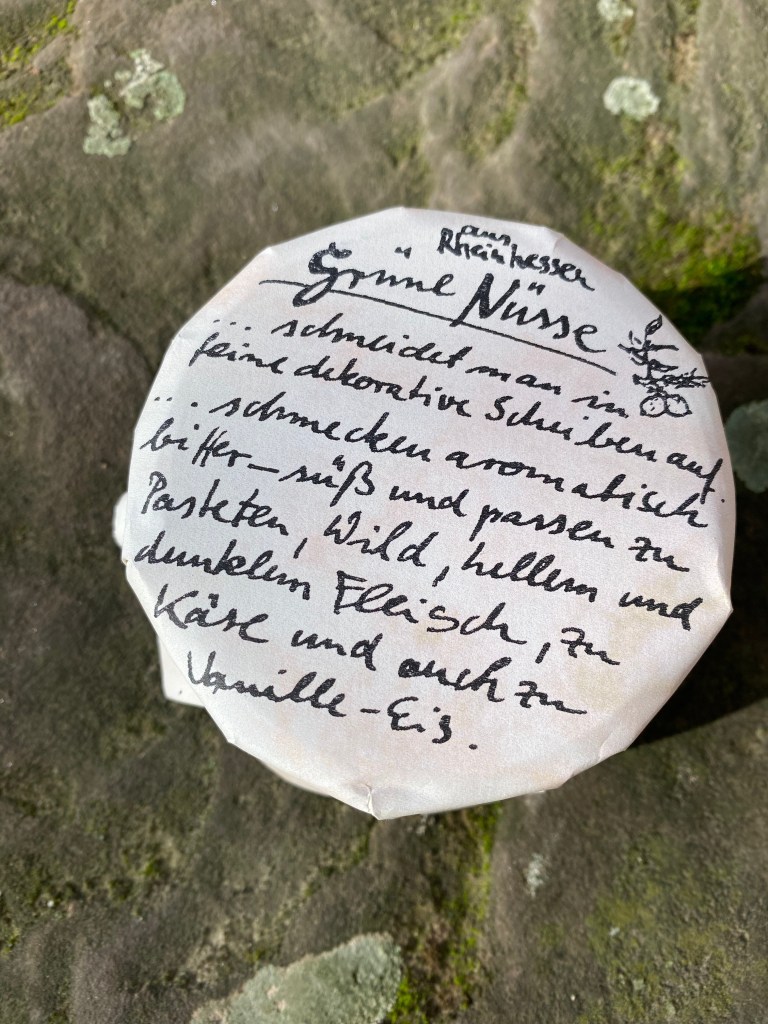 aus
Rheinhessen
Grüne Nüsse
... schneidet man in
feine dekorative Scheiben auf.
... schmecken aromatisch
bitter-süß und passen zu
Pasteten, Wild, hellem und
dunklem Fleisch, zu
Käse und auch zu
Vanille-Eis.